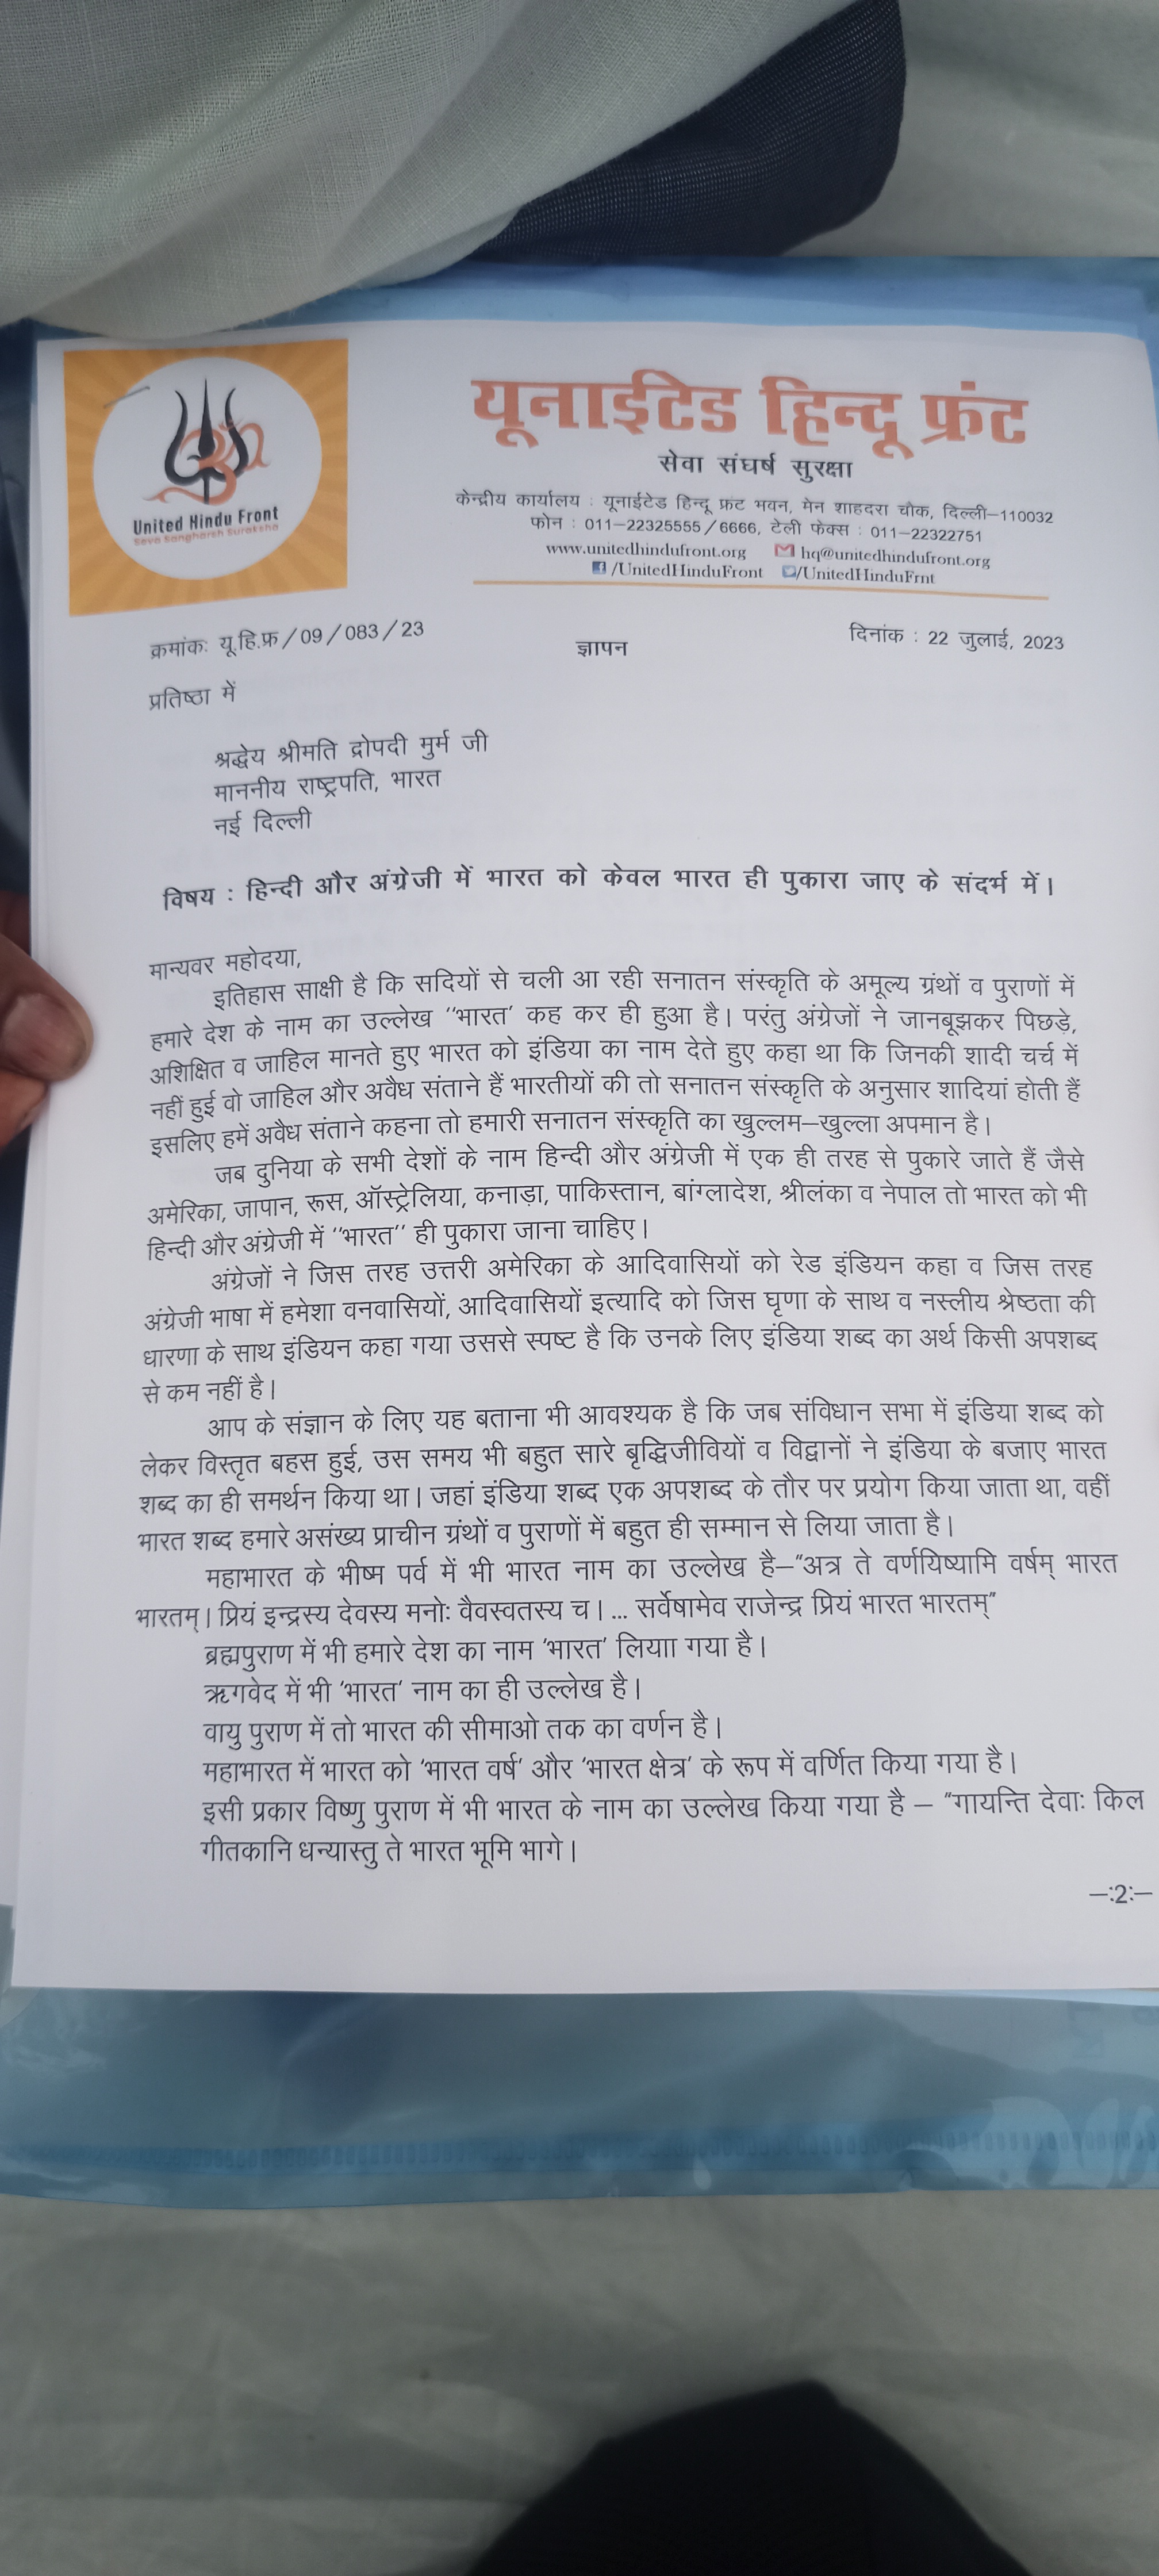 यूनाईटेड हिन्दू फ्रंट
सेवा संघर्ष सुरक्षा
United Hindu Front
Seva Sangharsh Suraksha
केन्द्रीय कार्यालय : यूनाईटेड हिन्दू फ्रंट भवन, मेन शाहदरा चौक, दिल्ली–110032
फोन : 011–22325555/6666, टेली फेक्स : 011–22322751
www.unitedhindufront.org hq@unitedhindufront.org
/UnitedHinduFront /UnitedHinduFrnt
क्रमांकः यू.हि.फ्र/09/083/23
ज्ञापन
दिनांक : 22 जुलाई, 2023
प्रतिष्ठा में
श्रद्धेय श्रीमति द्रोपदी मुर्म जी
माननीय राष्ट्रपति, भारत
नई दिल्ली
विषय : हिन्दी और अंग्रेजी में भारत को केवल भारत ही पुकारा जाए के संदर्भ में।
मान्यवर महोदया,
इतिहास साक्षी है कि सदियों से चली आ रही सनातन संस्कृति के अमूल्य ग्रंथों व पुराणों में
हमारे देश के नाम का उल्लेख ‘‘भारत’ कह कर ही हुआ है। परंतु अंग्रेजों ने जानबूझकर पिछड़े,
अशिक्षित व जाहिल मानते हुए भारत को इंडिया का नाम देते हुए कहा था कि जिनकी शादी चर्च में
नहीं हुई वो जाहिल और अवैध संताने हैं भारतीयों की तो सनातन संस्कृति के अनुसार शादियां होती हैं
इसलिए हमें अवैध संताने कहना तो हमारी सनातन संस्कृति का खुल्लम–खुल्ला अपमान है।
जब दुनिया के सभी देशों के नाम हिन्दी और अंग्रेजी में एक ही तरह से पुकारे जाते हैं जैसे
अमेरिका, जापान, रूस, ऑस्ट्रेलिया, कनाड़ा, पाकिस्तान, बांग्लादेश, श्रीलंका व नेपाल तो भारत को भी
हिन्दी और अंग्रेजी में ‘‘भारत’’ ही पुकारा जाना चाहिए।
अंग्रेजों ने जिस तरह उत्तरी अमेरिका के आदिवासियों को रेड इंडियन कहा व जिस तरह
अंग्रेजी भाषा में हमेशा वनवासियों, आदिवासियों इत्यादि को जिस घृणा के साथ व नस्लीय श्रेष्ठता की
धारणा के साथ इंडियन कहा गया उससे स्पष्ट है कि उनके लिए इंडिया शब्द का अर्थ किसी अपशब्द
से कम नहीं है।
आप के संज्ञान के लिए यह बताना भी आवश्यक है कि जब संविधान सभा में इंडिया शब्द को
लेकर विस्तृत बहस हुई, उस समय भी बहुत सारे बृद्धिजीवियों व विद्वानों ने इंडिया के बजाए भारत
शब्द का ही समर्थन किया था। जहां इंडिया शब्द एक अपशब्द के तौर पर प्रयोग किया जाता था, वहीं
भारत शब्द हमारे असंख्य प्राचीन ग्रंथों व पुराणों में बहुत ही सम्मान से लिया जाता है।
महाभारत के भीष्म पर्व में भी भारत नाम का उल्लेख है–“अत्र ते वर्णयिष्यामि वर्षम् भारत
भारतम्। प्रियं इन्द्रस्य देवस्य मनोः वैवस्वतस्य च। ... सर्वेषामेव राजेन्द्र प्रियं भारत भारतम्”
ब्रह्मपुराण में भी हमारे देश का नाम ‘भारत’ लियाा गया है।
ऋगवेद में भी ‘भारत’ नाम का ही उल्लेख है।
वायु पुराण में तो भारत की सीमाओ तक का वर्णन है।
महाभारत में भारत को ‘भारत वर्ष’ और ‘भारत क्षेत्र’ के रूप में वर्णित किया गया है।
इसी प्रकार विष्णु पुराण में भी भारत के नाम का उल्लेख किया गया है – “गायन्ति देवाः किल
गीतकानि धन्यास्तु ते भारत भूमि भागे।
–:2:–